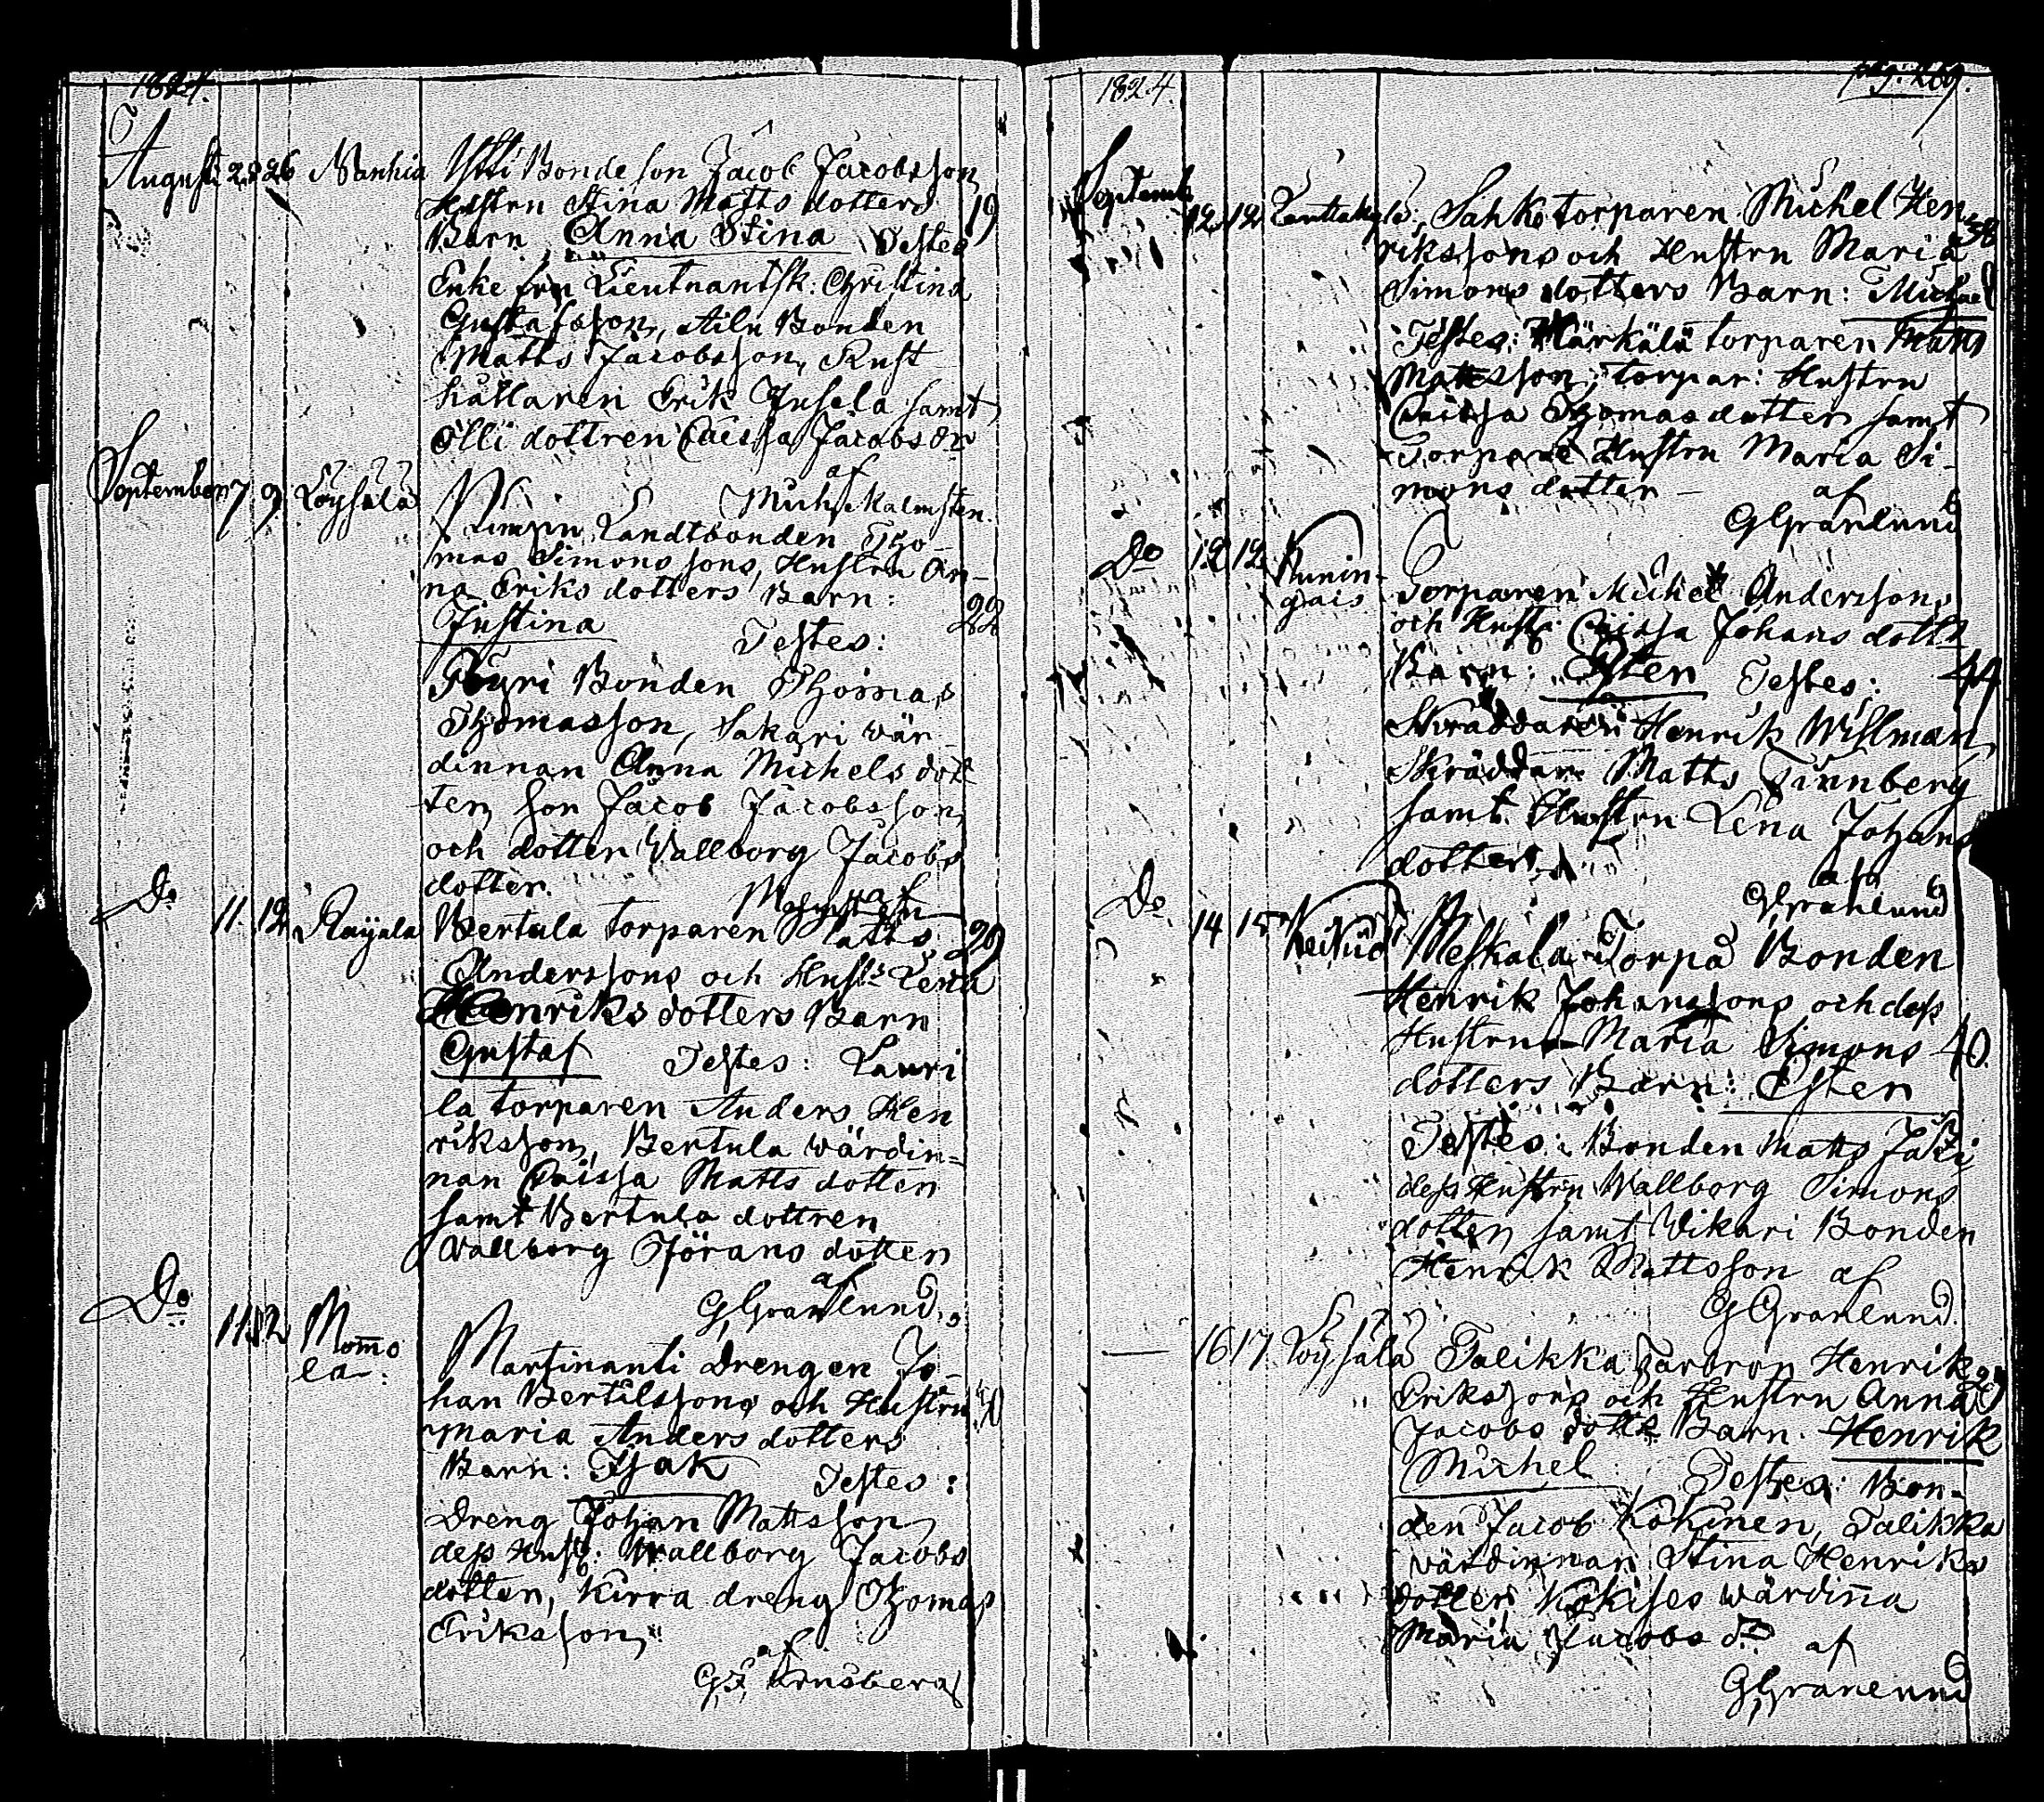 1824.
Augusti 23 26 Nanhia Ylli Bonde son Jacob Jacobsson
Hustru Stina Matts dotters 19
Barn Anna Stina Testes
Enke fru Lieutnantsk: Christina
Gustafsson, Bonden
Matts Jacobsson, Rust
hållaren Erik Jusela samt
Olli dottren Caissa Jacobs dr
af
Mich. Malmsten.
September 7 9 Löysälä Landtbonden Tho-
mas Simons sons, Hustru An-
na Eriks dotters Barn: 22
Justina Testes:
Bonden Thomas
Thomasson, Sakari wär-
dinnan Anna Michels dot
ter, son Jacob Jacobsson,
och dotter Wallborg Jacobs
dotter.
Do 11. 12 Rayala Bertula torparen Matts 29
Anderssons och Hustr Lena
Henriks dotters Barn
Gustaf Testes: Lauri
la torparen Anders Hen
riksson, Bertula wärdin=
nan Caissa Matts dotter
samt Bertula dottren
Wallborg Jörans dotter
af
G Granlund.
Do 11 12 Mom̄o
la Martinanti Drengen Jo-
han Bertilssons och Hustru 40
Maria Anders dotters
Barn: Isak Testes:
Dreng Johan Mattsson
dess Hust: Wallborg Jacobs
dotter, Kirra dreng Thomas
Eriksson,
af
1824. pag: 269.
Septemb 12 12 Sahko torparen Michel Hen
rikssons och Hustru Maria 38
Simons dotters Barn: Michael
Testes: Härkälä torparen Matts
Mattsson, torpar: Hustru
Caissa Thomas dotter samt
Torpare Hustru Maria Si-
mons dotter - af
G Granlund
Do 12 12 Kunin-
gais Torparen Michel Anderssons
och Hust: Caissa Johans dottr
Barn: Esten Testes: 44
Skräddaren Henrik Wihlman,
Skräddar Matts Linnberg
samt Hustru Lena Johans
dotter
af
G Granlund
Do 14 15 Keikiö Meskala Torpa Bonden
Henrik Johanssons och dess
Hustru Maria Simons 40.
dotters Barn: Esten
Testes: Bonden Matts Jaki
dess Hustru Wallborg Simons
dotter, samt Wikari Bonden
Henrik Mattsson af
G Granlund.
16 17 Löysälä Talikka Farbron Henrik 29
Erikssons och Hustru Anna
Jacobs dottr Barn. Henrik
Michel Testes: Bon-
den Jacob Kokinen, Talikka
värdinnan Stina Henriks
dotter Kokises wärdin̄a
Maria Jacobs dr af
G Granlund